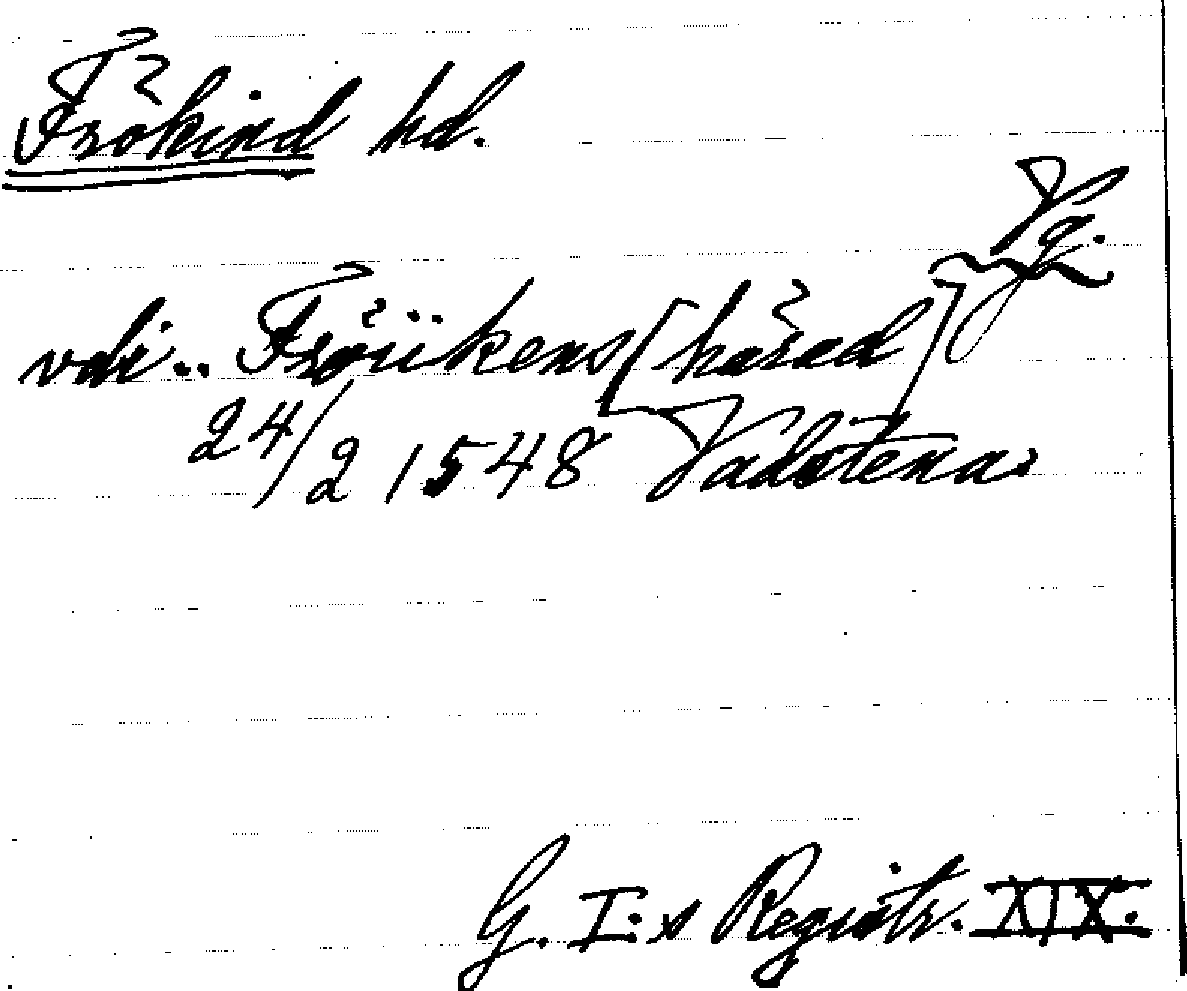 Frökind hd.
Vg.
vdi.. Fröükens [härad]
24/2 1548 Vadstena
G. I:s Registr. XIX.